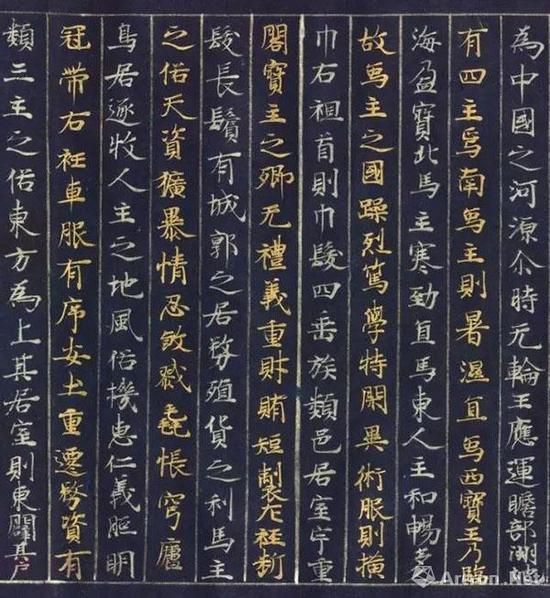 為中國之河源尒時无輪王應運瞻部洲地
有四主焉南象主則暑濕宜象西寶主乃臨
海盈寶北馬主寒勁宜馬東人主和暢多人
故象主之國躁烈篤學特閑異術服則橫
巾右袒首則巾髮四垂族類邑居室宇重
閣寶主之鄉无禮義重財賄短製左衽斷
髮長鬚有城郭之居務殖貨之利馬主
之俗天資獷暴情忍煞戮毳帳穹廬
鳥居逐牧人主之地風俗機惠仁義照明
冠帶右衽車服有序安土重遷務資有
類三主之俗東方為上其居室則東闢其戶
Artron.Net